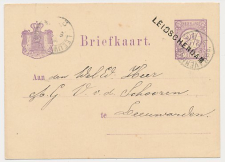 Briefkaart
LEIDSCHENDAM
Aan den WelEd. Heer
G. V. d. Schooren
te Leeuwarden